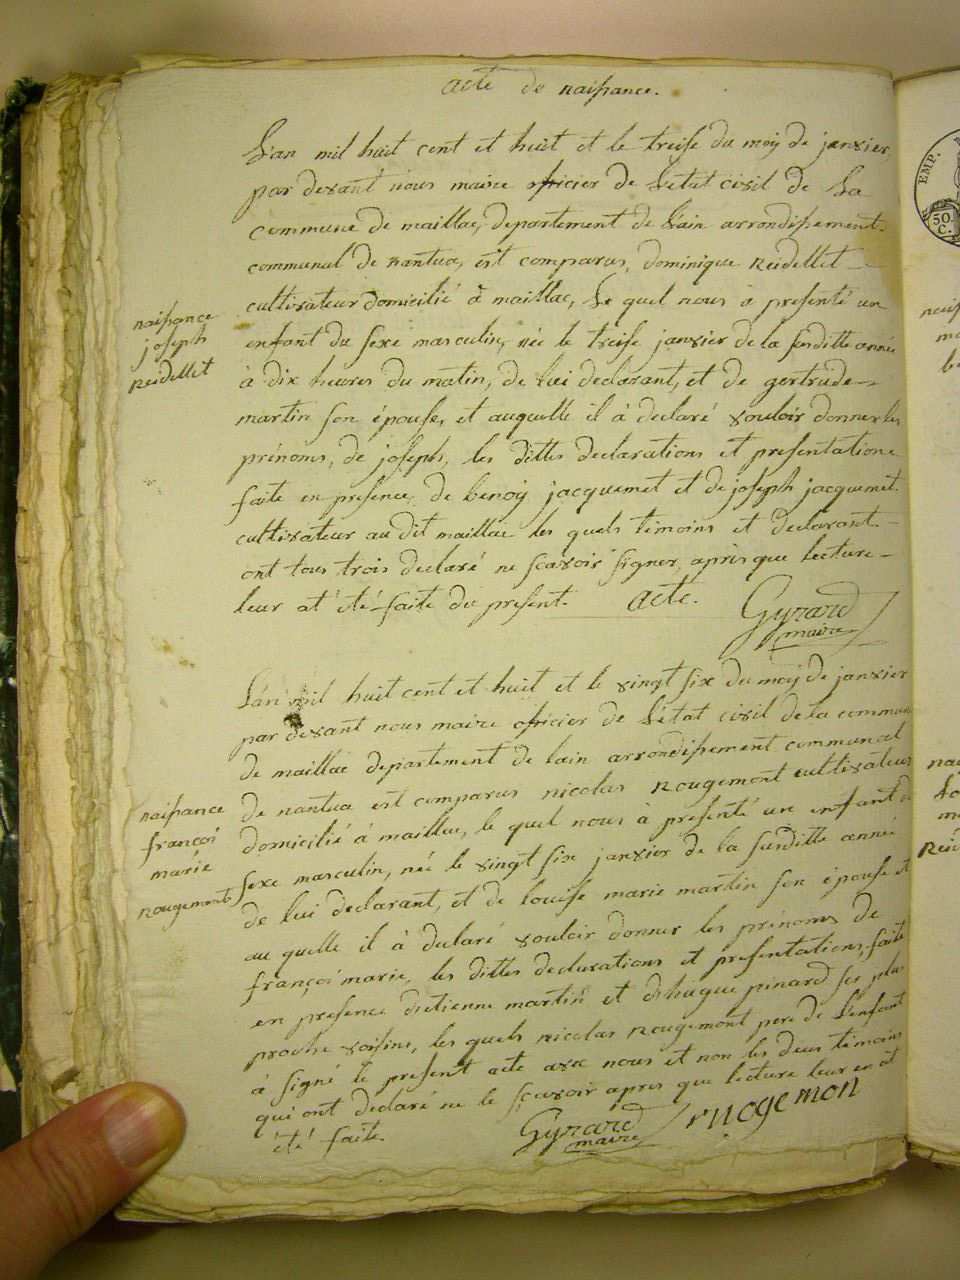 acte de naissance.
L'an mil huit cent et huit et le treise du moy de janvier,
par devant nous maire officier de L'état civil de La
commune de maillac, departement de L'ain arrondissement.
communal de nantua, est comparus, dominique Reidellet
cultivateur domicilié à maillac, Le quel nous a presenté un
enfant du sexe masculin, née le treise janvier de la susditte année
à dix heures du matin, de lui declarant, et de gertrude
martin son épouse, et auquelle il à declaré vouloir donner les
prénoms, de joseph, les dittes declarations et presentations
faite en presence, de benoy jacquemet et de joseph jacquemet
cultivateur au dit maillac les quels témoins et declarant
ont tous trois declaré ne scavoir signer, apris que lecture
leur at été faite du present. acte.
Gynard
maire
naissance
joseph
Reidellet
L'an mil huit cent et huit et le vingt six du moy de janvier
par devant nous maire officier de L'état civil de la commune
de maillac departement de lain arrondissement communal
de nantua est comparus nicolas Rougemont cultivateur
domicilié à maillac, le quel nous à presenté un enfant du
sexe masculin, née le vingt six janvier de la susditte année
de lui declarant, et de louise marie martin son épouse et
au quelle il à declaré vouloir donner les prénoms de
françoi marie, les dittes declarations et presentations, faite
en presence dietienne martin et dhugue pinard ses plus
proche voisins, les quels nicolas Rougemont pere de L'enfant
à signé le present acte avec nous et non les deux témoins
qui ont declaré ne le scavoir apres que lecture leur en at
été faite.
Gynard
maire
rugemon
naissance
françoi
marie
Rougemont
EMP.
50.
C.